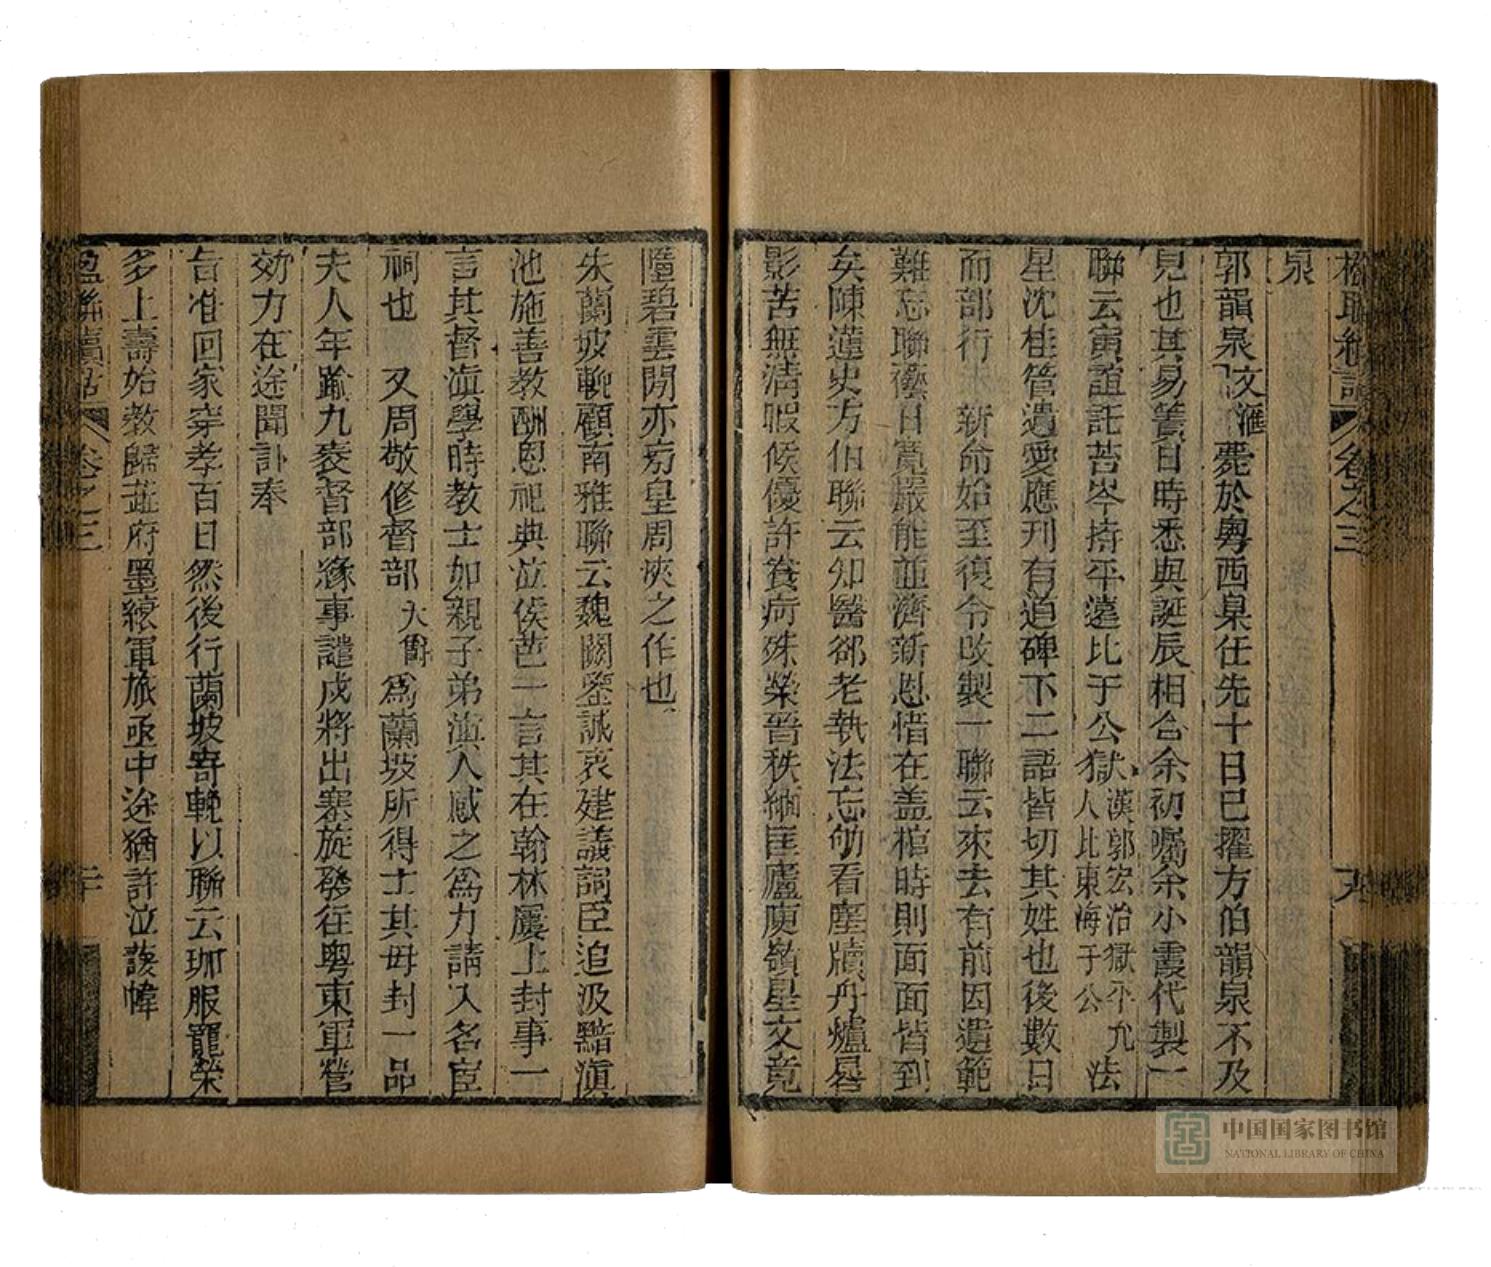 楹聯續話 卷之三 九
泉
郭韻泉文滙薨於粵西臬任先十日已擢方伯韻泉不及
見也其易簀日時悉與誕辰相合余初囑余小霞代製一
聯云寅誼託苔岑持平遠比于公獄漢郭宏治獄平允人比東海于公法
星沈桂管遺愛應刊有道碑下二語皆切其姓也後數日
而部行 新命始至復令改製一聯云來去有前因遺範
難忘聯薇日寬嚴能並濟新恩惜在蓋棺時則面面皆到
矣陳蓮史方伯聯云知醫郤老執法忘勞看塵牘丹爐晷
影苦無淸暇候優許養疴殊榮晉秩緬匡廬庾嶺星文竟
隨碧雲閒亦旁皇周浹之作也
朱蘭坡輓顧南雅聯云魏闕鑒誠哀建議詞臣追汲黯滇
池施善教酬恩祀典泣侯芭一言其在翰林屢上封事一
言其督滇學時教士如親子弟滇人感之爲力請入名宦
祠也 又周敬修督部天爵爲蘭坡所得士其母封一品
夫人年踰九袠督部緣事譴戍將出塞旋發往粵東軍營
効力在途聞訃奉
旨准回家穿孝百日然後行蘭坡寄輓以聯云珈服寵榮
多上壽始教歸蓝府墨縗軍旅亟中途猶許泣護幃
楹聯續話 卷之三 二十
中国国家图书馆
NATIONAL LIBRARY OF CHINA